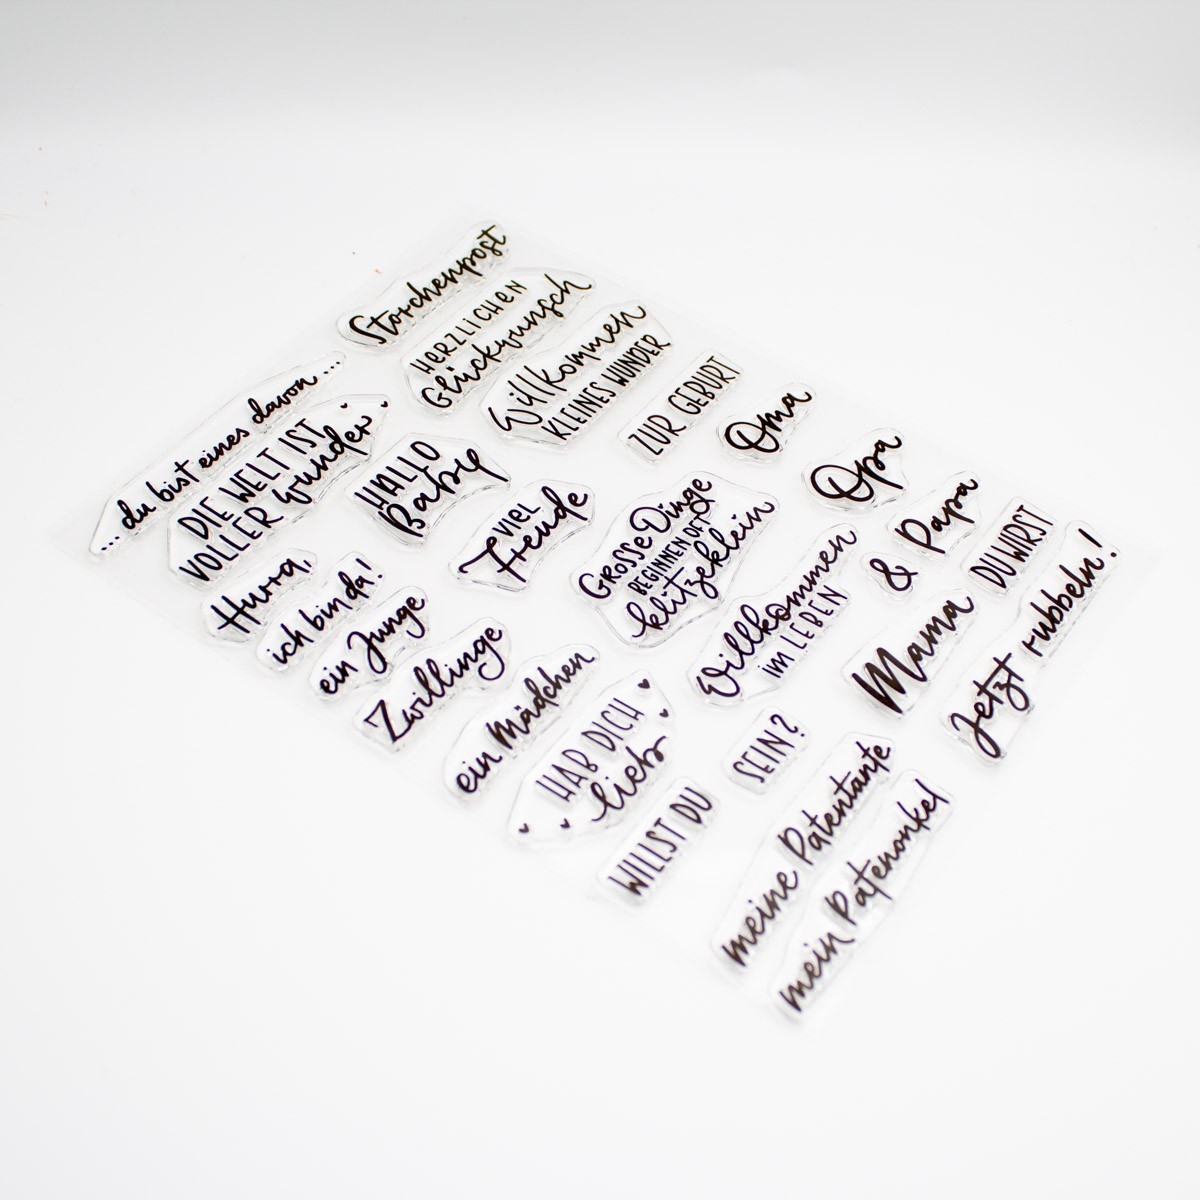 Storchenpost
HERZLICHEN
Glückwunsch
Willkommen
KLEINES WUNDER
ZUR GEBURT
Oma
Opa
Papa
&
Mama
DU WIRST
Jetzt rubbeln!
... du bist eines davon ...
DIE WELT IST
VOLLER Wunder
HALLO
Baby
VIEL
Freude
GROSSE Dinge
BEGINNEN OFT
klitzeklein
Willkommen
IM LEBEN
Hurra,
ich bin da!
ein Junge
Zwillinge
ein Mädchen
HAB DICH
lieb
WILLST DU
SEIN?
meine Patentante
mein Patenonkel